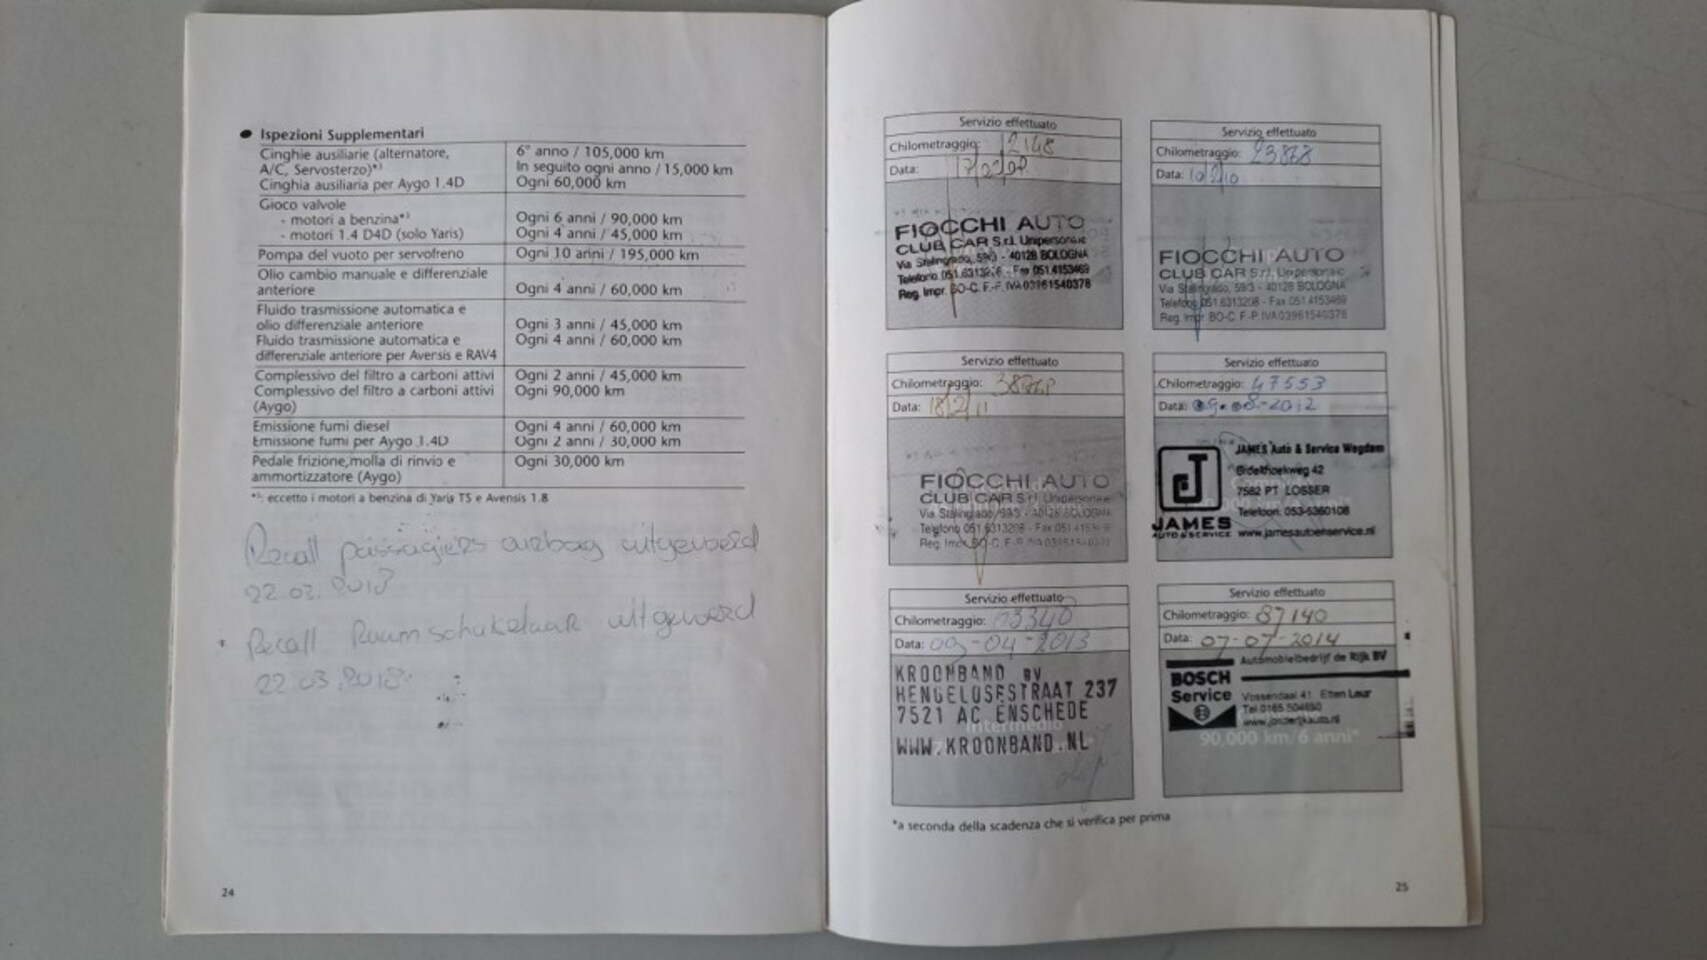 ● Ispezioni Supplementari
Cinghie ausiliarie (alternatore, 6° anno / 105,000 km
A/C, Servosterzo)*¹ In seguito ogni anno / 15,000 km
Cinghia ausiliaria per Aygo 1.4D Ogni 60,000 km
Gioco valvole
- motori a benzina*¹ Ogni 6 anni / 90,000 km
- motori 1.4 D4D (solo Yaris) Ogni 4 anni / 45,000 km
Pompa del vuoto per servofreno Ogni 10 anni / 195,000 km
Olio cambio manuale e differenziale
anteriore Ogni 4 anni / 60,000 km
Fluido trasmissione automatica e
olio differenziale anteriore Ogni 3 anni / 45,000 km
Fluido trasmissione automatica e Ogni 4 anni / 60,000 km
differenziale anteriore per Avensis e RAV4
Complessivo del filtro a carboni attivi Ogni 2 anni / 45,000 km
Complessivo del filtro a carboni attivi Ogni 90,000 km
(Aygo)
Emissione fumi diesel Ogni 4 anni / 60,000 km
Emissione fumi per Aygo 1.4D Ogni 2 anni / 30,000 km
Pedale frizione,molla di rinvio e Ogni 30,000 km
ammortizzatore (Aygo)
*¹: eccetto i motori a benzina di Yaris TS e Avensis 1.8
Recall passagiers airbag uitgevoerd
22.03.2018
Recall Raamschakelaar uitgevoerd
22.03.2018
24
Servizio effettuato
Chilometraggio: 12148
Data:
FIOCCHI AUTO
CLUB CAR S.r.l. Unipersonale
Via Stalingrado, 59/3 - 40128 BOLOGNA
Telefono 051.6313208 - Fax 051.4153469
Reg. Impr. BO-C. F.-P. IVA 03961540378
Servizio effettuato
Chilometraggio: 23868
Data: 10/2/10
FIOCCHI AUTO
CLUB CAR S.r.l. Unipersonale
Via Stalingrado, 59/3 - 40128 BOLOGNA
Telefono 051.6313208 - Fax 051.4153469
Reg. Impr. BO-C. F.-P. IVA 03961540378
Servizio effettuato
Chilometraggio:
Data: 18/2/11
FIOCCHI AUTO
CLUB CAR S.r.l. Unipersonale
Via Stalingrado, 59/3 - 40128 BOLOGNA
Telefono 051.6313208 - Fax 051.4153469
Reg. Impr. BO-C. F.-P. IVA 03961540378
Servizio effettuato
Chilometraggio: 47553
Data: 09-08-2012
JAMES Auto & Service Wegdam
7582 PT LOSSER
Telefoon: 053-5360108
www.jamesautoenservice.nl
JAMES
AUTO & SERVICE
Servizio effettuato
Chilometraggio: 63340
Data: 09-04-2013
KROONBAND BV
HENGELOSESTRAAT 237
7521 AC ENSCHEDE
Intermedio
WWW.KROONBAND.NL
Servizio effettuato
Chilometraggio: 87140
Data: 07-07-2014
Automobielbedrijf de Rijk BV
BOSCH
Service
Vossendaal 41 Etten Leur
Tel 0165 504690
90,000 km/6 anni*
*a seconda della scadenza che si verifica per prima
25